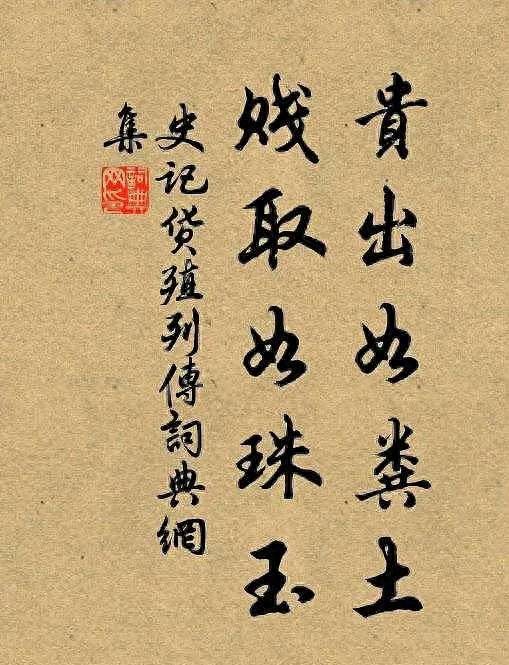 貴出如糞土
賤取如珠玉
史记货殖列傳詞典網
集
詞典
网